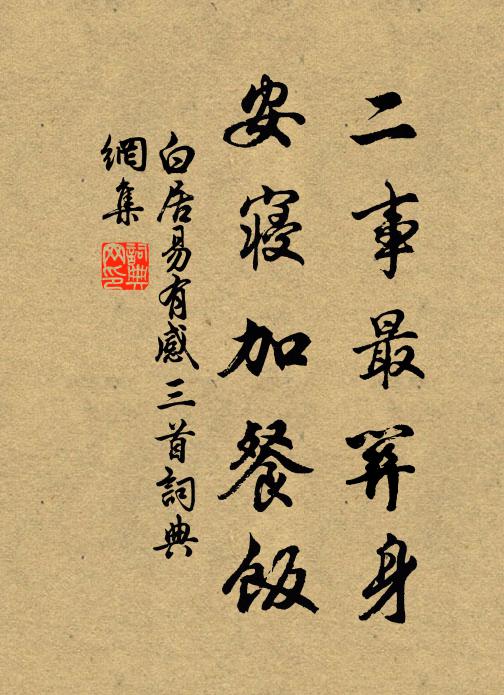 二事最關身
安寢加餐飯
白居易有感三首詞典
網集
詞典
网印